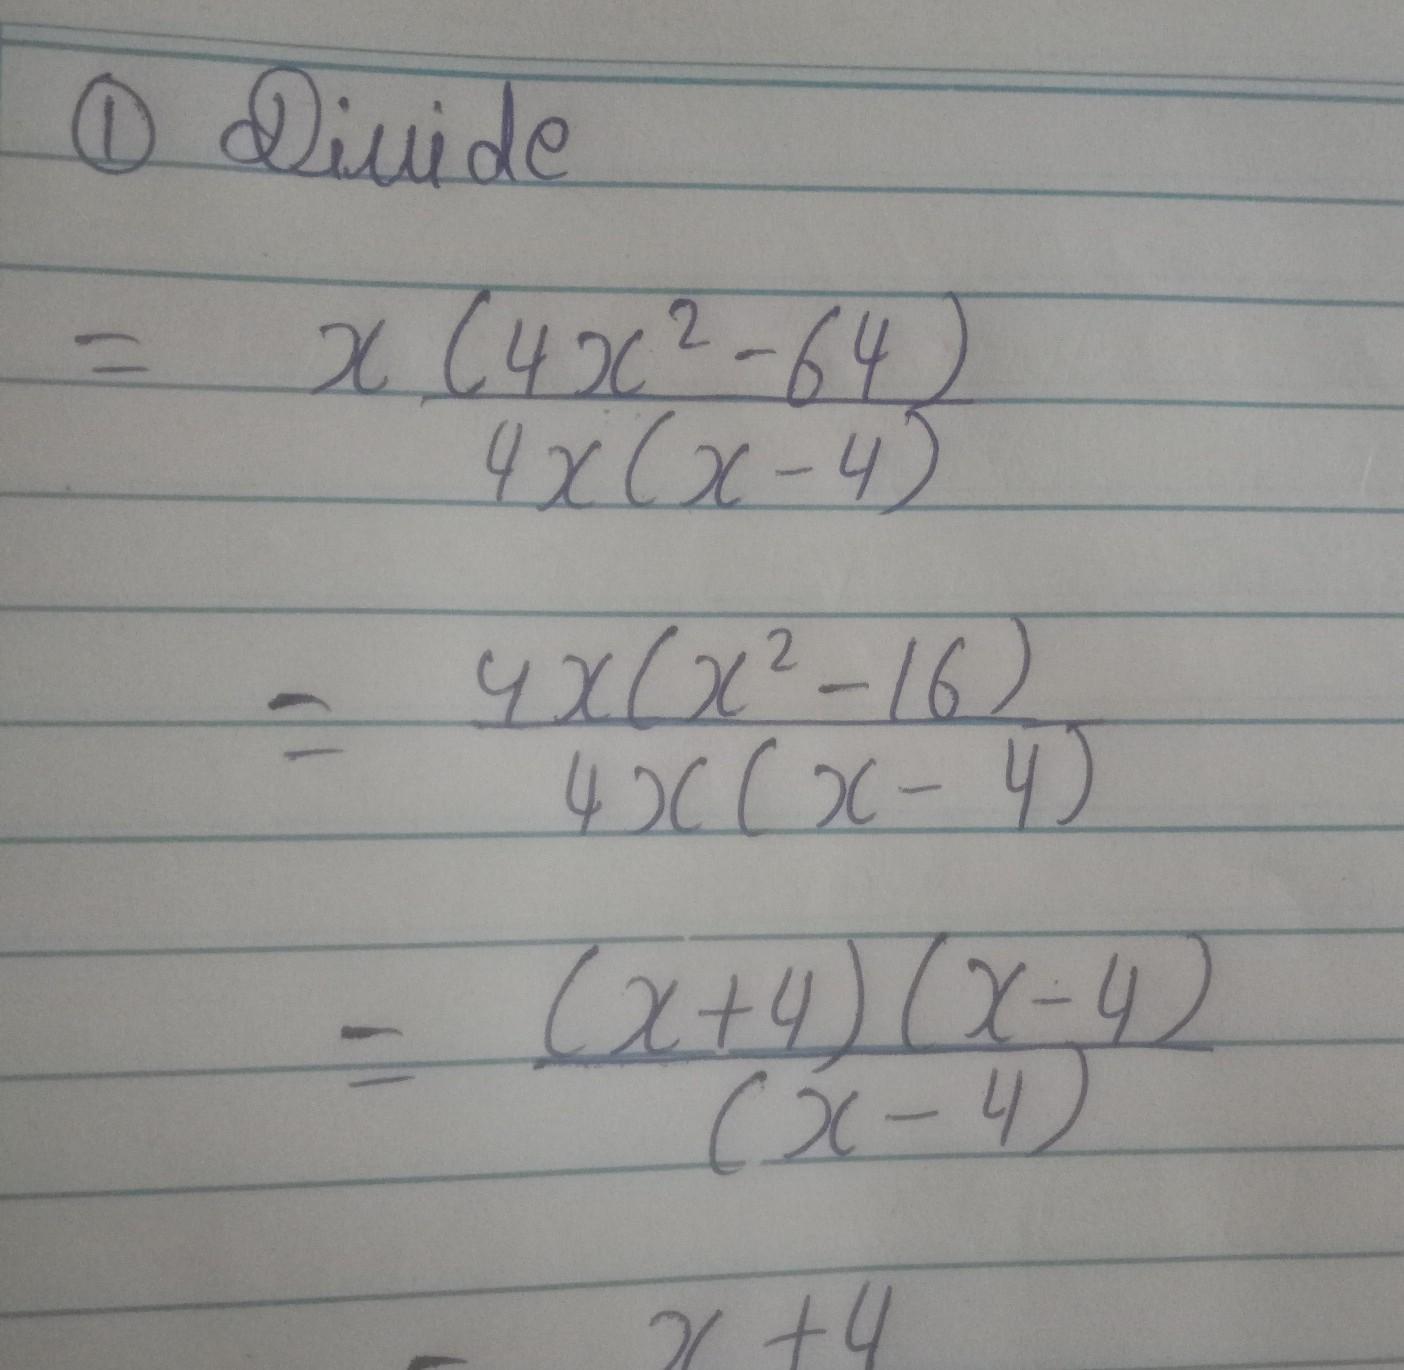 ① Divide
= x(4x² - 64)
4x(x - 4)
= 4x(x² - 16)
4x(x - 4)
= (x+4)(x-4)
(x - 4)
= x + 4